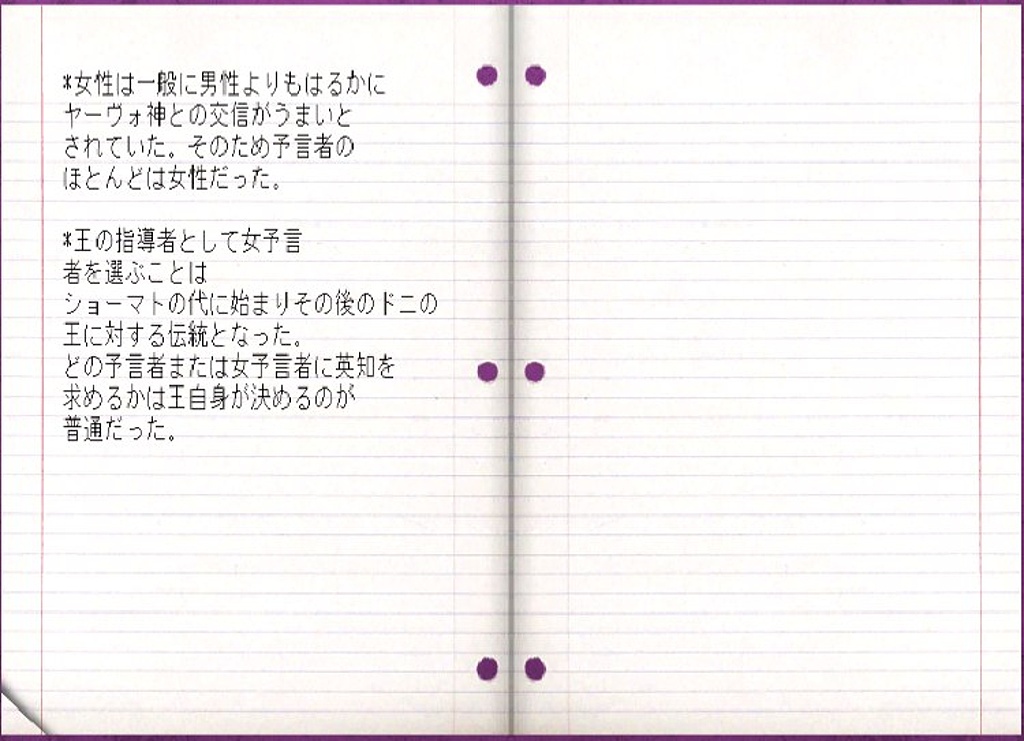 *女性は一般に男性よりもはるかに
ヤーヴォ神との交信がうまいと
されていた。そのため予言者の
ほとんどは女性だった。
*王の指導者として女予言
者を選ぶことは
ショーマトの代に始まりその後のドニの
王に対する伝統となった。
どの予言者または女予言者に英知を
求めるかは王自身が決めるのが
普通だった。